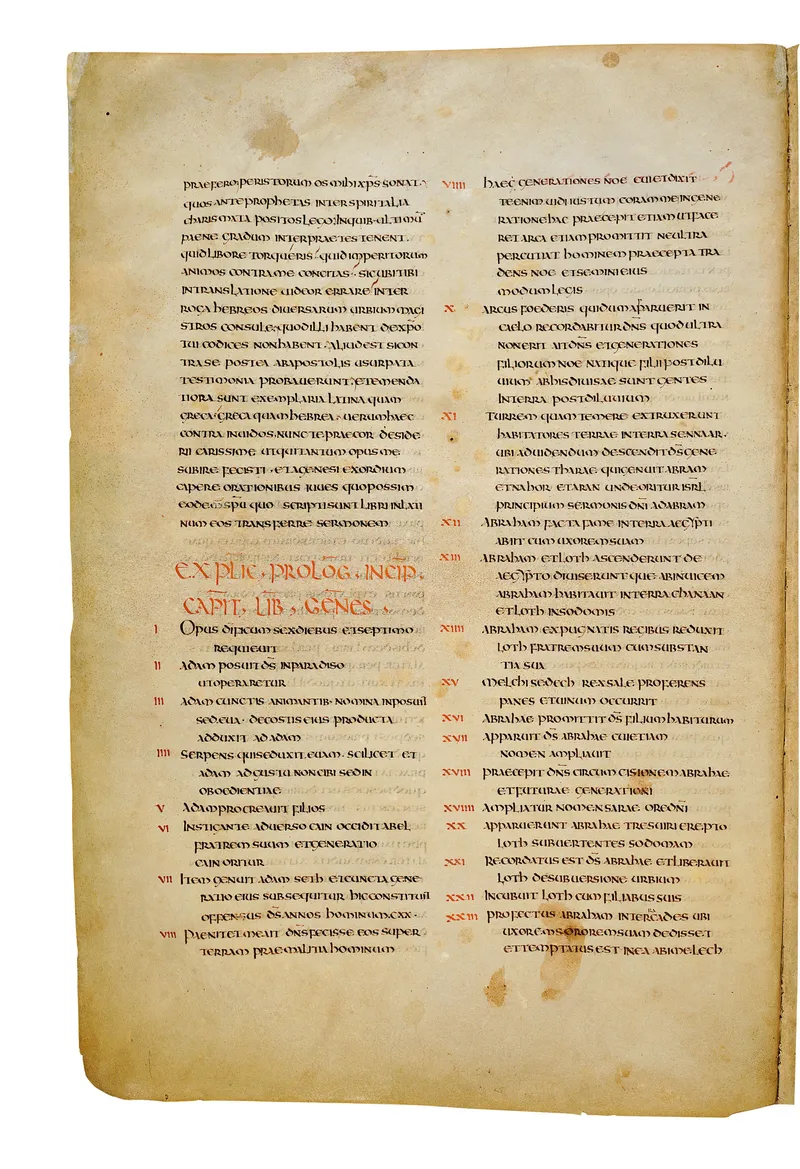 praefero peristorum os mihi xp̄s sonat·
quos ante prophetas inter spiritalia
charismata positos lego; inquib· ultimū
paene gradum interpraetes tenent.
quid libore torqueris· quid imperitorum
animos contra me concitas· sicubi tibi
in translatione uideor errare inter
roga hebreos diuersarum urbium magi
stros consule· quod illi habent de xp̄o
tui codices non habent· aliud est si con
tra se postea ab apostolis usurpata
testimonia probauerunt· et emenda
tiora sunt exemplaria latina quam
greca· greca quam hebrea· uerum haec
contra inuidos· nunc te praecor deside
rii carissime ut quia tantum opus me
subire fecisti· et a genesi exordium
capere orationibus iuues quo possim
eodem sp̄u quo scripti sunt libri in lati
num eos transferre sermonem
EXPLIC· PROLOG· INCIP·
CAPIT· LIB· GENES·
I Opus dierum sex diebus et septimo
requieuit
II Adam posuit d̄s in paradiso
ut operaretur
III Adam cunctis animantib· nomina inposuit
sed eua· de costis eius producta
adduxit ad adam
IIII Serpens qui seduxit euam· scilicet et
adam ad gustum non cibi sed in
oboedientiae
V Adam procreauit filios
VI Instigante aduerso cain occidit abel
fratrem suum et generatio
cain oritur
VII Item genuit adam seth et cuncta gene
ratio eius subsequitur hic constituit
offensus d̄s annos hominum cxx·
VIII Paenitet me ait dn̄s fecisse eos super
terram prae malitia hominum
VIIII haec generationes noe cui et dixit
te enim uidi iustum coram me in gene
ratione hac praecepit etiam ut face
ret arca etiam promittit ne ultra
percutiat hominem praecepta tra
dens noe et semini eius
modum legis
X Arcus foederis qui dum apparuerit in
caelo recordabitur dn̄s quod ultra
non erit aitdn̄s et generationes
filiorum noe natique filii post dilu
uium ab his diuisae sunt gentes
in terra post diluuium
XI Turrem quam temere extruxerunt
habitatores terrae in terra sennaar·
ubi ad uidendum descendit d̄s gene
rationes tharae qui genuit abram
et nahor et aran unde oritur isrl̄
principium sermonis dn̄i ad abram
XII Abraham facta fame in terra aegypti
abiit cum uxorem suam
XIII Abraham et loth ascenderunt de
aegypto diuiserunt que ab inuicem
abraham habitauit in terra chanaan
et loth in sodomis
XIIII Abraham expugnatis regibus reduxit
loth fratrem suum cum substan
tia sua
XV Melchisedech rex sale proferens
panes et uinum occurrit
XVI Abrahae promittit d̄s filium habiturum
XVII Apparuit d̄s abrahae cui etiam
nomen ampliauit
XVIII Praecepit dn̄s circumcisionem abrahae
et futurae generationi
XVIIII Ampliatur nomen sarae ore dn̄i
XX Apparuerunt abrahae tres uiri erepto
loth subuertentes sodomam
XXI Recordatus est d̄s abrahae et liberauit
loth de subuersione urbium
XXII Incubuit loth cum filiabus suis
XXIII Profectus abraham inter cades ubi
uxorem sororem suam dedisset
et temptatus est in ea abimelech